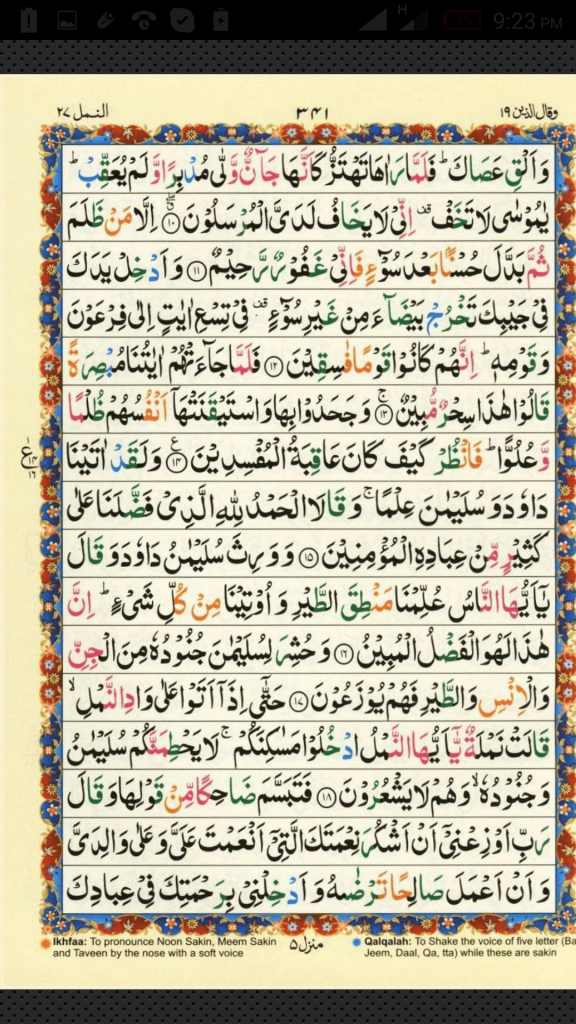 H
5%
9:23 PM
وقال الذین ۱۹
۳۴۱
النمل ۲۷
وَاَلْقِ عَصَاكَ ؕ فَلَمَّا رَاٰهَا تَهْتَزُّ كَاَنَّهَا جَآنٌّ وَّلّٰى مُدْبِرًا وَّلَمْ يُعَقِّبْ ؕ
يٰمُوْسٰى لَا تَخَفْ ۫ اِنِّىْ لَا يَخَافُ لَدَىَّ الْمُرْسَلُوْنَ ۖۗ ۱۰ اِلَّا مَنْ ظَلَمَ
ثُمَّ بَدَّلَ حُسْنًۢا بَعْدَ سُوْٓءٍ فَاِنِّىْ غَفُوْرٌ رَّحِيْمٌ ۱۱ وَاَدْخِلْ يَدَكَ
فِىْ جَيْبِكَ تَخْرُجْ بَيْضَآءَ مِنْ غَيْرِ سُوْٓءٍ ۫ فِىْ تِسْعِ اٰيٰتٍ اِلٰى فِرْعَوْنَ
وَقَوْمِهٖ ؕ اِنَّهُمْ كَانُوْا قَوْمًا فٰسِقِيْنَ ۱۲ فَلَمَّا جَآءَتْهُمْ اٰيٰتُنَا مُبْصِرَةً
قَالُوْا هٰذَا سِحْرٌ مُّبِيْنٌ ۚ ۱۳ وَجَحَدُوْا بِهَا وَاسْتَيْقَنَتْهَاۤ اَنْفُسُهُمْ ظُلْمًا
وَّعُلُوًّا ؕ فَانْظُرْ كَيْفَ كَانَ عَاقِبَةُ الْمُفْسِدِيْنَ ۱۴ ع وَلَقَدْ اٰتَيْنَا
ع ۱ ۱۴ ۱۶
دَاوٗدَ وَسُلَيْمٰنَ عِلْمًا ۚ وَقَالَا الْحَمْدُ لِلّٰهِ الَّذِىْ فَضَّلَنَا عَلٰى
كَثِيْرٍ مِّنْ عِبَادِهِ الْمُؤْمِنِيْنَ ۱۵ وَوَرِثَ سُلَيْمٰنُ دَاوٗدَ وَقَالَ
يٰۤاَيُّهَا النَّاسُ عُلِّمْنَا مَنْطِقَ الطَّيْرِ وَاُوْتِيْنَا مِنْ كُلِّ شَىْءٍ ؕ اِنَّ
هٰذَا لَهُوَ الْفَضْلُ الْمُبِيْنُ ۱۶ وَحُشِرَ لِسُلَيْمٰنَ جُنُوْدُهٗ مِنَ الْجِنِّ
وَالْاِنْسِ وَالطَّيْرِ فَهُمْ يُوْزَعُوْنَ ۱۷ حَتّٰٓى اِذَاۤ اَتَوْا عَلٰى وَادِ النَّمْلِ ۙ
قَالَتْ نَمْلَةٌ يّٰۤاَيُّهَا النَّمْلُ ادْخُلُوْا مَسٰكِنَكُمْ ۚ لَا يَحْطِمَنَّكُمْ سُلَيْمٰنُ
وَجُنُوْدُهٗ ۙ وَهُمْ لَا يَشْعُرُوْنَ ۱۸ فَتَبَسَّمَ ضَاحِكًا مِّنْ قَوْلِهَا وَقَالَ
رَبِّ اَوْزِعْنِىْٓ اَنْ اَشْكُرَ نِعْمَتَكَ الَّتِىْٓ اَنْعَمْتَ عَلَىَّ وَعَلٰى وَالِدَىَّ
وَاَنْ اَعْمَلَ صَالِحًا تَرْضٰٮهُ وَاَدْخِلْنِىْ بِرَحْمَتِكَ فِىْ عِبَادِكَ
Ikhfaa: To pronounce Noon Sakin, Meem Sakin
and Taveen by the nose with a soft voice
منزل ۵
Qalqalah: To Shake the voice of five letter (Ba
Jeem, Daal, Qa, tta) while these are sakin